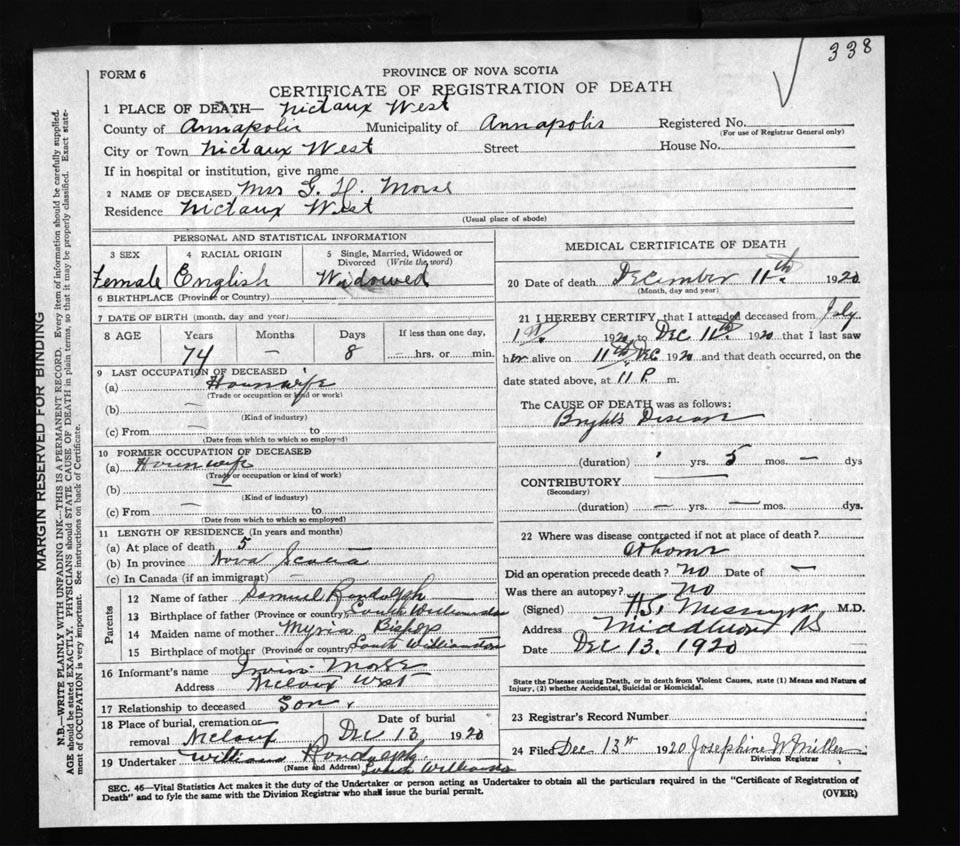 338
FORM 6
PROVINCE OF NOVA SCOTIA
CERTIFICATE OF REGISTRATION OF DEATH
1 PLACE OF DEATH— Nictaux West
County of Annapolis Municipality of Annapolis Registered No.
(For use of Registrar General only)
City or Town Nictaux West Street House No.
If in hospital or institution, give name
2 NAME OF DECEASED Mrs G. H. Morse
Residence Nictaux West
(Usual place of abode)
MARGIN RESERVED FOR BINDING
N.B.—WRITE PLAINLY WITH UNFADING INK—THIS IS A PERMANENT RECORD. Every item of information should be carefully supplied.
AGE should be stated EXACTLY. PHYSICIANS should STATE CAUSE OF DEATH in plain terms, so that it may be properly classified. Exact state-
ment of OCCUPATION is very important. See instructions on back of Certificate.
PERSONAL AND STATISTICAL INFORMATION
3 SEX 4 RACIAL ORIGIN 5 Single, Married, Widowed or
Divorced (Write the word)
Female English Widowed
6 BIRTHPLACE (Province or Country)
7 DATE OF BIRTH (month, day and year)
8 AGE Years Months Days If less than one day,
74 — 8 — hrs. or min.
9 LAST OCCUPATION OF DECEASED
(a) Housewife
(Trade or occupation or kind or work)
(b) —
(Kind of industry)
(c) From — to
(Date from which to which so employed)
10 FORMER OCCUPATION OF DECEASED
(a) Housewife
(Trade or occupation or kind of work)
(b) —
(Kind of industry)
(c) From — to
(Date from which to which so employed)
11 LENGTH OF RESIDENCE (In years and months)
(a) At place of death 5
(b) In province Nova Scotia
(c) In Canada (if an immigrant) —
Parents
12 Name of father Samuel Randolph
13 Birthplace of father (Province or country) South Williamston
14 Maiden name of mother Bishop
15 Birthplace of mother (Province or country) South Williamston
16 Informant's name Morse
Address West
17 Relationship to deceased Son.
18 Place of burial, cremation or Date of burial
removal Dec 13 1920
19 Undertaker William Randolph
(Name and Address) South Williamston
MEDICAL CERTIFICATE OF DEATH
20 Date of death December 11th 1920
(Month, day and year)
21 I HEREBY CERTIFY, that I attended deceased from July
1st 1920 to Dec 11th 1920 that I last saw
her alive on 11th Dec 1920 and that death occurred, on the
date stated above, at 11 P. m.
The CAUSE OF DEATH was as follows:
Bright's Disease
(duration) yrs. 5 mos. — dys
CONTRIBUTORY —
(Secondary)
(duration) — yrs. — mos. dys.
22 Where was disease contracted if not at place of death?
at home
Did an operation precede death? No Date of —
Was there an autopsy? No
(Signed) M.D.
Address Middleton NS
Date Dec 13. 1920
State the Disease causing Death, or in death from Violent Causes, state (1) Means and Nature of
Injury, (2) whether Accidental, Suicidal or Homicidal.
23 Registrar's Record Number
24 Filed Dec 13th 1920 Josephine W Miller
Division Registrar
SEC. 46—Vital Statistics Act makes it the duty of the Undertaker or person acting as Undertaker to obtain all the particulars required in the "Certificate of Registration of
Death" and to fyle the same with the Division Registrar who shall issue the burial permit.
(OVER)